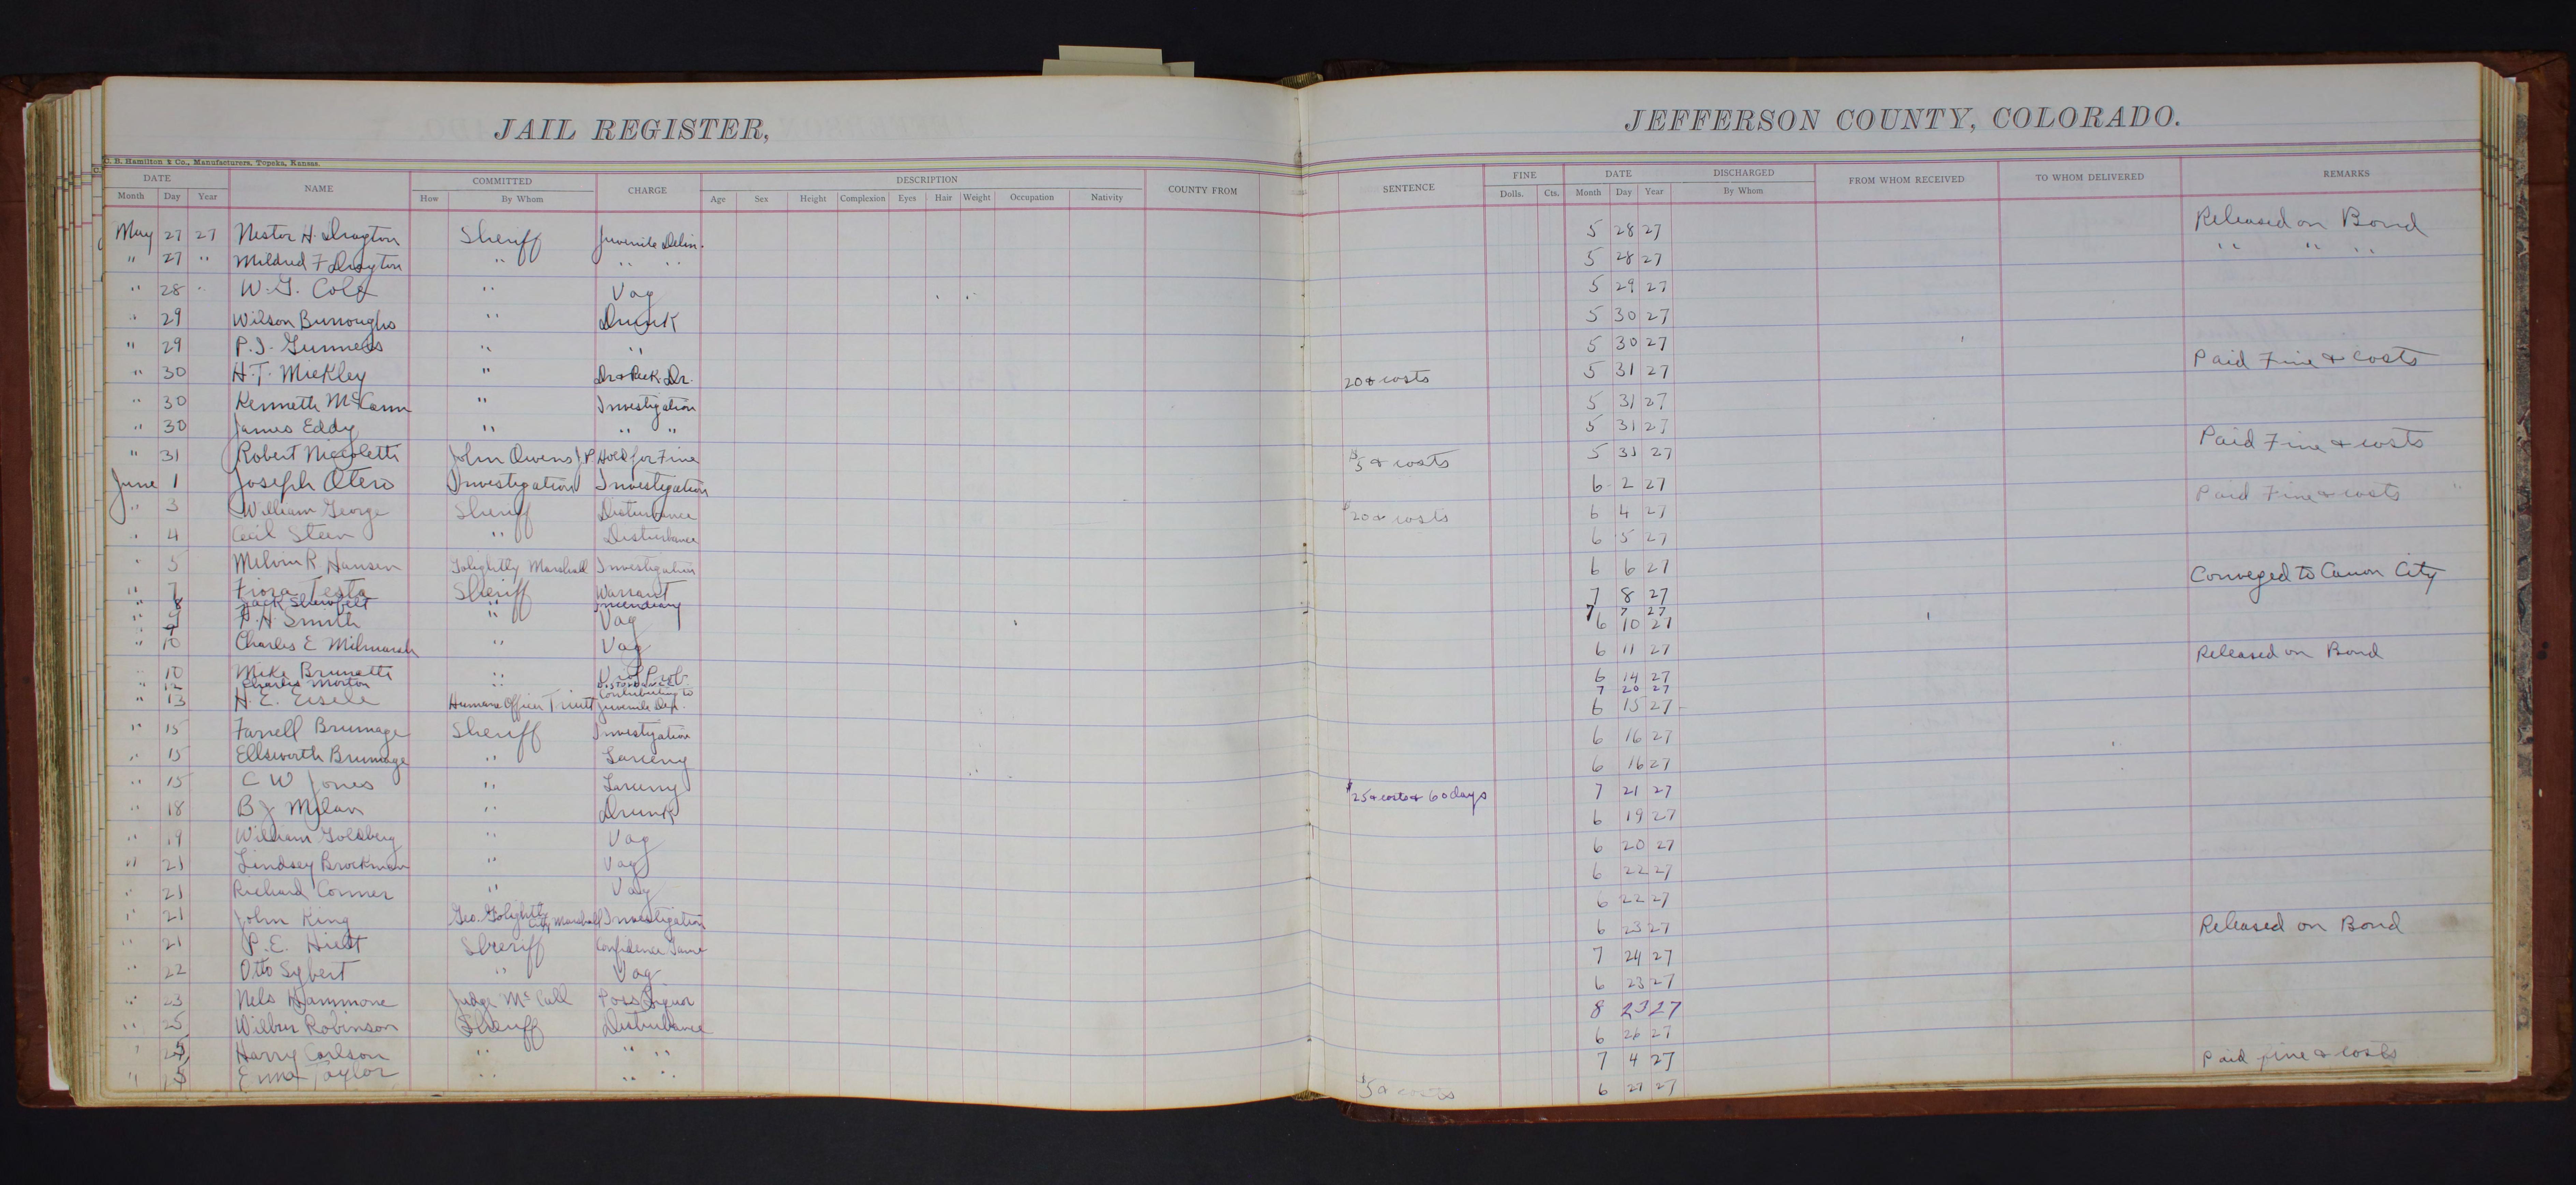 JAIL REGISTER, JEFFERSON COUNTY, COLORADO.
C. B. Hamilton & Co., Manufacturers, Topeka, Kansas.
DATE NAME COMMITTED CHARGE DESCRIPTION COUNTY FROM SENTENCE FINE DATE DISCHARGED FROM WHOM RECEIVED TO WHOM DELIVERED REMARKS
Month Day Year How By Whom Age Sex Height Complexion Eyes Hair Weight Occupation Nativity Dolls. Cts. Month Day Year By Whom
May 27 27 Nestor H. Drayton Sheriff Juvenile Delin. 5 28 27 Released on Bond
" 27 " Mildred F Drayton " " " 5 28 27 " " "
" 28 " W. G. " Vag 5 29 27
" 29 Wilson Burroughs " Drunk 5 30 27
" 29 P. J. " " 5 30 27
" 30 H. T. Mickley " Dr & Reck Dr. 20 & costs 5 31 27 Paid Fine & Costs
" 30 Kenneth McCann " Investigation 5 31 27
" 30 James Eddy " " " 5 31 27
" 31 Robert Nicoletti John Owens J P Hold for Fine $5 & costs 5 31 27 Paid Fine & costs
June 1 Joseph Otero Investigation Investigation 6 2 27
" 3 William George Sheriff Disturbance $20 & costs 6 4 27 Paid Fine & costs "
" 4 Cecil " Disturbance 6 5 27
" 5 Melvin R Hansen Golightly Marshall Investigation 6 6 27
" 7 Fiora Testa Sheriff Warrant 7 8 27 Conveyed to Canon City
" 8 Jack " Incendiary 7 7 27
" 9 H. Smith Vag 6 10 27
" 10 Charles E " Vag 6 11 27
" 10 Mike Brunetti " V of Prob 6 14 27 Released on Bond
" 12 Charles Morton " Disturbance 7 20 27
" 13 H. E. Eisele Humane Officer Contributing to Juvenile Del. 6 15 27
" 15 Farrell Brumage Sheriff Investigation 6 16 27
" 15 Ellsworth Brumage " Larceny 6 16 27
" 15 C W Jones " Larceny $25 & costs & 60 days 7 21 27
" 18 B J Milan " Drunk 6 19 27
" 19 William Goldberg " Vag 6 20 27
" 21 Lindsey Brockman " Vag 6 22 27
" 21 Richard Conner " Vag 6 22 27
" 21 John King Geo. Golightly City Marshall Investigation 6 23 27
" 21 P. E. Hiett Sheriff Confidence Game 7 24 27 Released on Bond
" 22 Otto Sybert " Vag 6 23 27
" 23 Nels Hammone Judge McCall Poss Liquor 8 23 27
" 25 Wilbur Robinson Sheriff Disturbance 6 26 27
" 25 Harry Carlson " " " 7 4 27
" Taylor " " " $5 & costs 6 27 27 Paid fine & costs